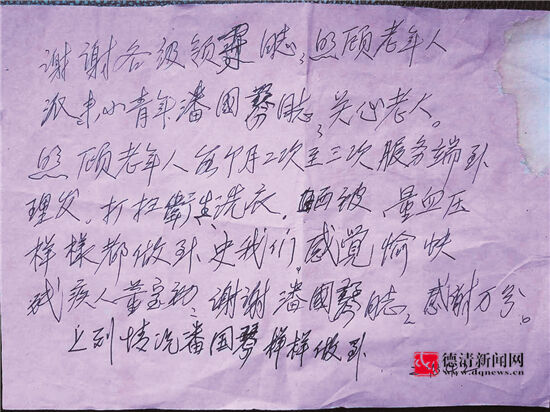 谢谢各级领导同志,照顾老年人
派来小青年潘国琴同志,关心老人。
照顾老年人每个月二次至三次服务端到
理发、打扫衛生洗衣、晒被、量血压
样様都做到、史我们,感觉愉快
残疾人董宝初、谢谢潘國琴同志,感谢万分。
上列情况潘国琴样样做到
德清新闻网
www.dqnews.cn